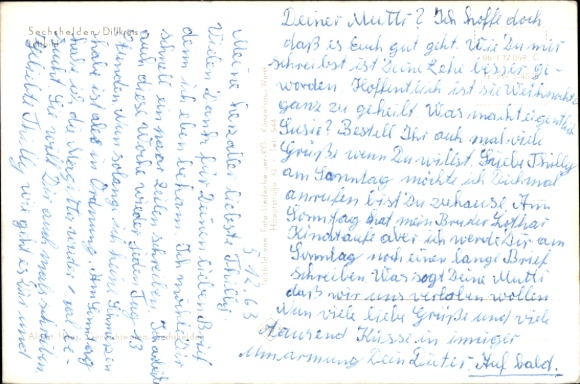 Sechshelden/Dillkreis
5.12.63
Meine herzaller liebste Thilly
Vielen Dank für Deinen lieben Brief
dem ich eben bekam. Ich möchte Dir
schnell ein paar Zeilen schreiben. Ich arbeite
auch diese Woche wieder jeden Tag 13
Stunden. Nun solang ich keine Schmerzen
habe ist alles in Ordnung. Am Sonntag
habe ich die Magi
Sie will Dir auch mal schreiben
Geliebte Thilly wie geht es Dir und
Deiner Mutti? Ich hoffe doch
daß es Euch gut geht. Wie Du mir
schreibst ist Deine Zehe besser ge-
worden. Hoffentlich ist sie Weihnachten
ganz zu geheilt. Was macht eigentlich
Susie? Bestell Ihr auch mal viele
Grüße wenn Du willst. Liebe Thilly
am Sonntag möchte ich Dich mal
anrufen bist Du zuhause. Am
Sonntag hat mein Bruder Lothar
Kindtaufe aber ich werde Dir am
Sonntag noch einen lange Brief
schreiben. Was sagt Deine Mutti
daß wir uns verloben wollen.
Nun viele liebe Grüße und viele
tausend Küsse in inniger
Umarmung Dein Dieter. Auf bald.